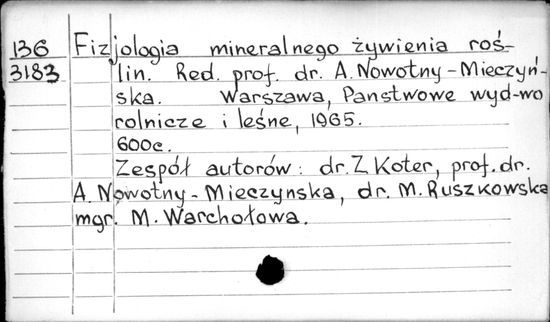 136 Fizjologia mineralnego żywienia roś-
3183 lin. Red. prof. dr. A. Nowotny-Mieczyń-
ska. Warszawa, Państwowe wyd-wo
rolnicze i leśne, 1965.
600c.
Zespół autorów: dr. Z Koter, prof. dr.
A. Nowotny-Mieczynska, dr. M. Ruszkowska
mgr. M. Warchołowa.